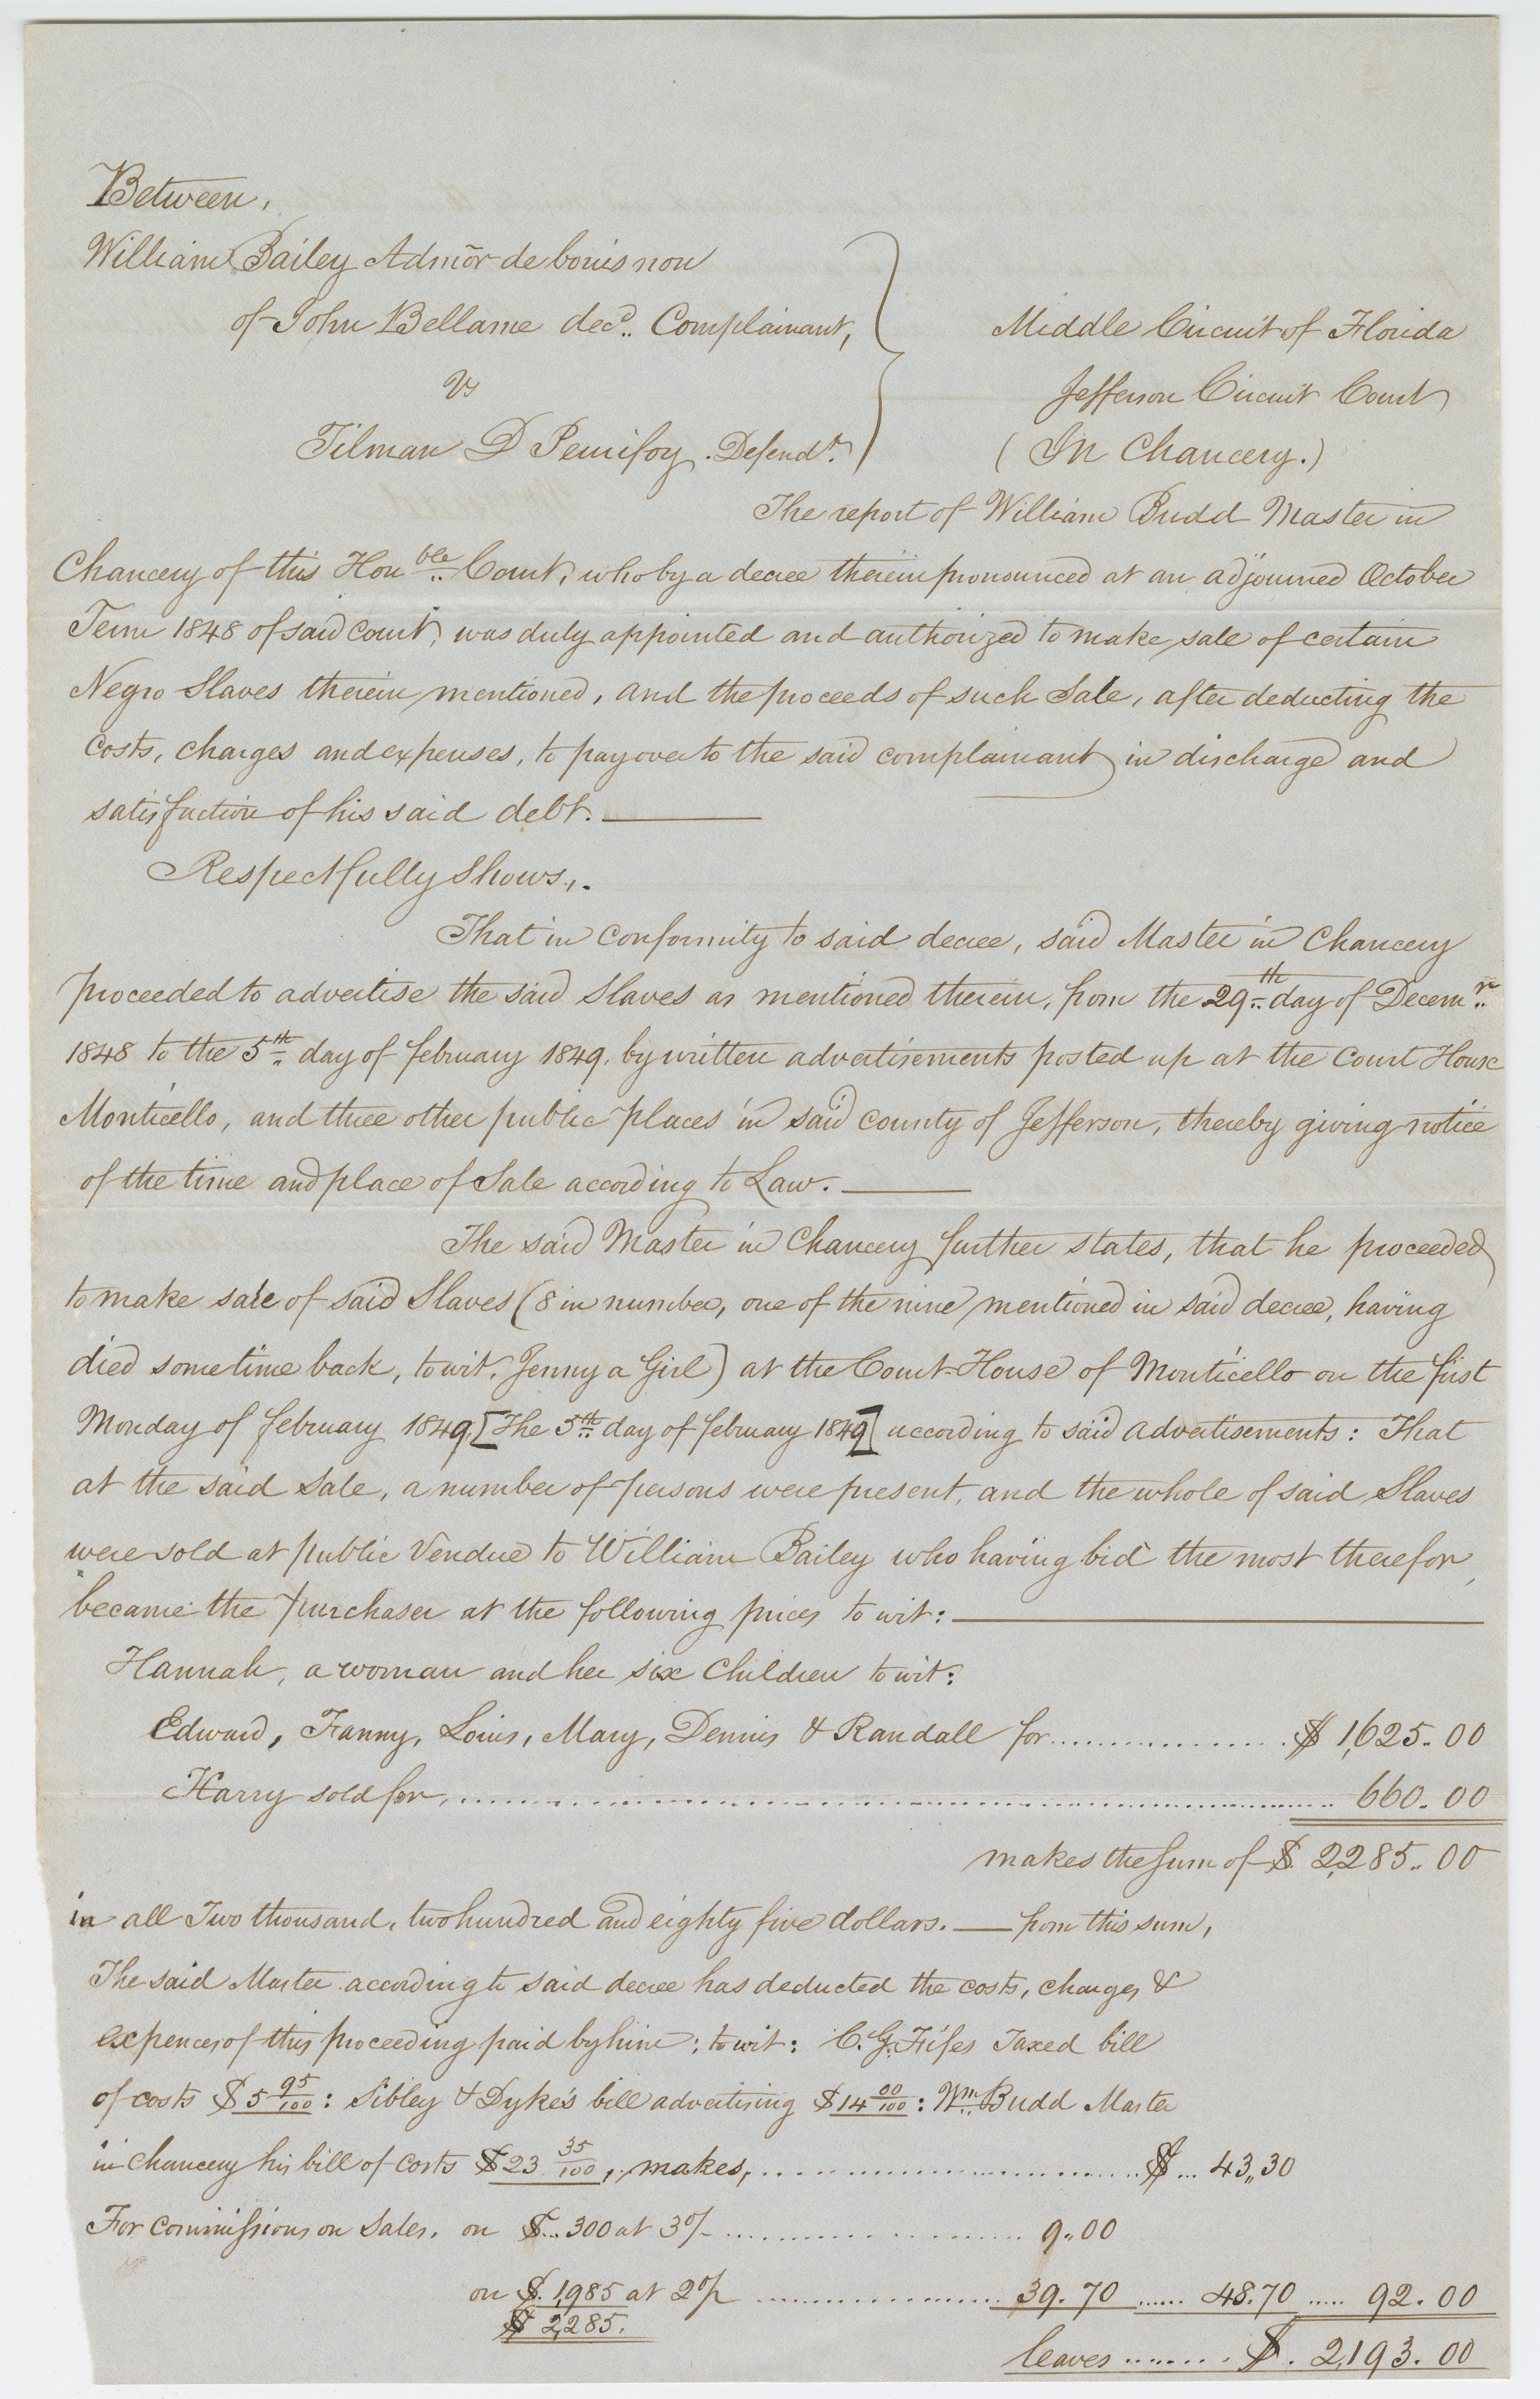 Between,
William Bailey Admõr de bonis non
of John Bellame decd. Complainant,
vs
Tilman D Penifoy. Defendt.
Middle Circuit of Florida
Jefferson Circuit Court
(In Chancery.)
The report of William Budd Master in
Chancery of this Honble Court, who by a decree therein pronounced at an adjourned October
Term 1848 of said court, was duly appointed and authorized to make sale of certain
Negro Slaves therein mentioned, and the proceeds of such Sale, after deducting the
costs, charges and expenses, to pay over to the said complainant in discharge and
satisfaction of his said debt.
Respectfully Shows,.
That in conformity to said decree, said Master in Chancery
proceeded to advertise the said Slaves as mentioned therein, from the 29th day of Decemr
1848 to the 5th day of february 1849. by written advertisements posted up at the Court House
Monticello, and three other public places in said county of Jefferson, thereby giving notice
of the time and place of Sale according to Law.
The said Master in Chancery further states, that he proceeded
to make sale of said Slaves (8 in number, one of the nine mentioned in said decree, having
died sometime back, to wit, Jenny a Girl) at the Court-House of Monticello on the first
Monday of february 1849 [The 5th day of february 1849] according to said advertisements: That
at the said Sale, a number of persons were present, and the whole of said Slaves
were sold at public Vendue to William Bailey who having bid the most therefor,
became the purchaser at the following prices to wit:
Hannah, a woman and her six Children to wit:
Edward, Fanny, Louis, Mary, Dennis & Randall for................ $ 1,625.00
Harry sold for, ................ 660.00
makes the Sum of $ 2,285.00
in all Two thousand, two hundred and eighty five dollars. — from this sum,
The said Master according to said decree has deducted the costs, charges &
expences of this proceeding paid by him; to wit: C. G. Fifes Taxed bill
of costs $5 95/100: Sibley & Dyke's bill advertising $14 00/100: Wm Budd Master
in Chancery his bill of Costs $23 35/100, makes, ................ $ ... 43,,30
For commissions on Sales, on $... 300 at 3% ................ 9.00
on $. 1,985 at 2% ................ 39.70 ...... 48.70 ..... 92.00
$ 2,285.
leaves ........ $. 2,193.00